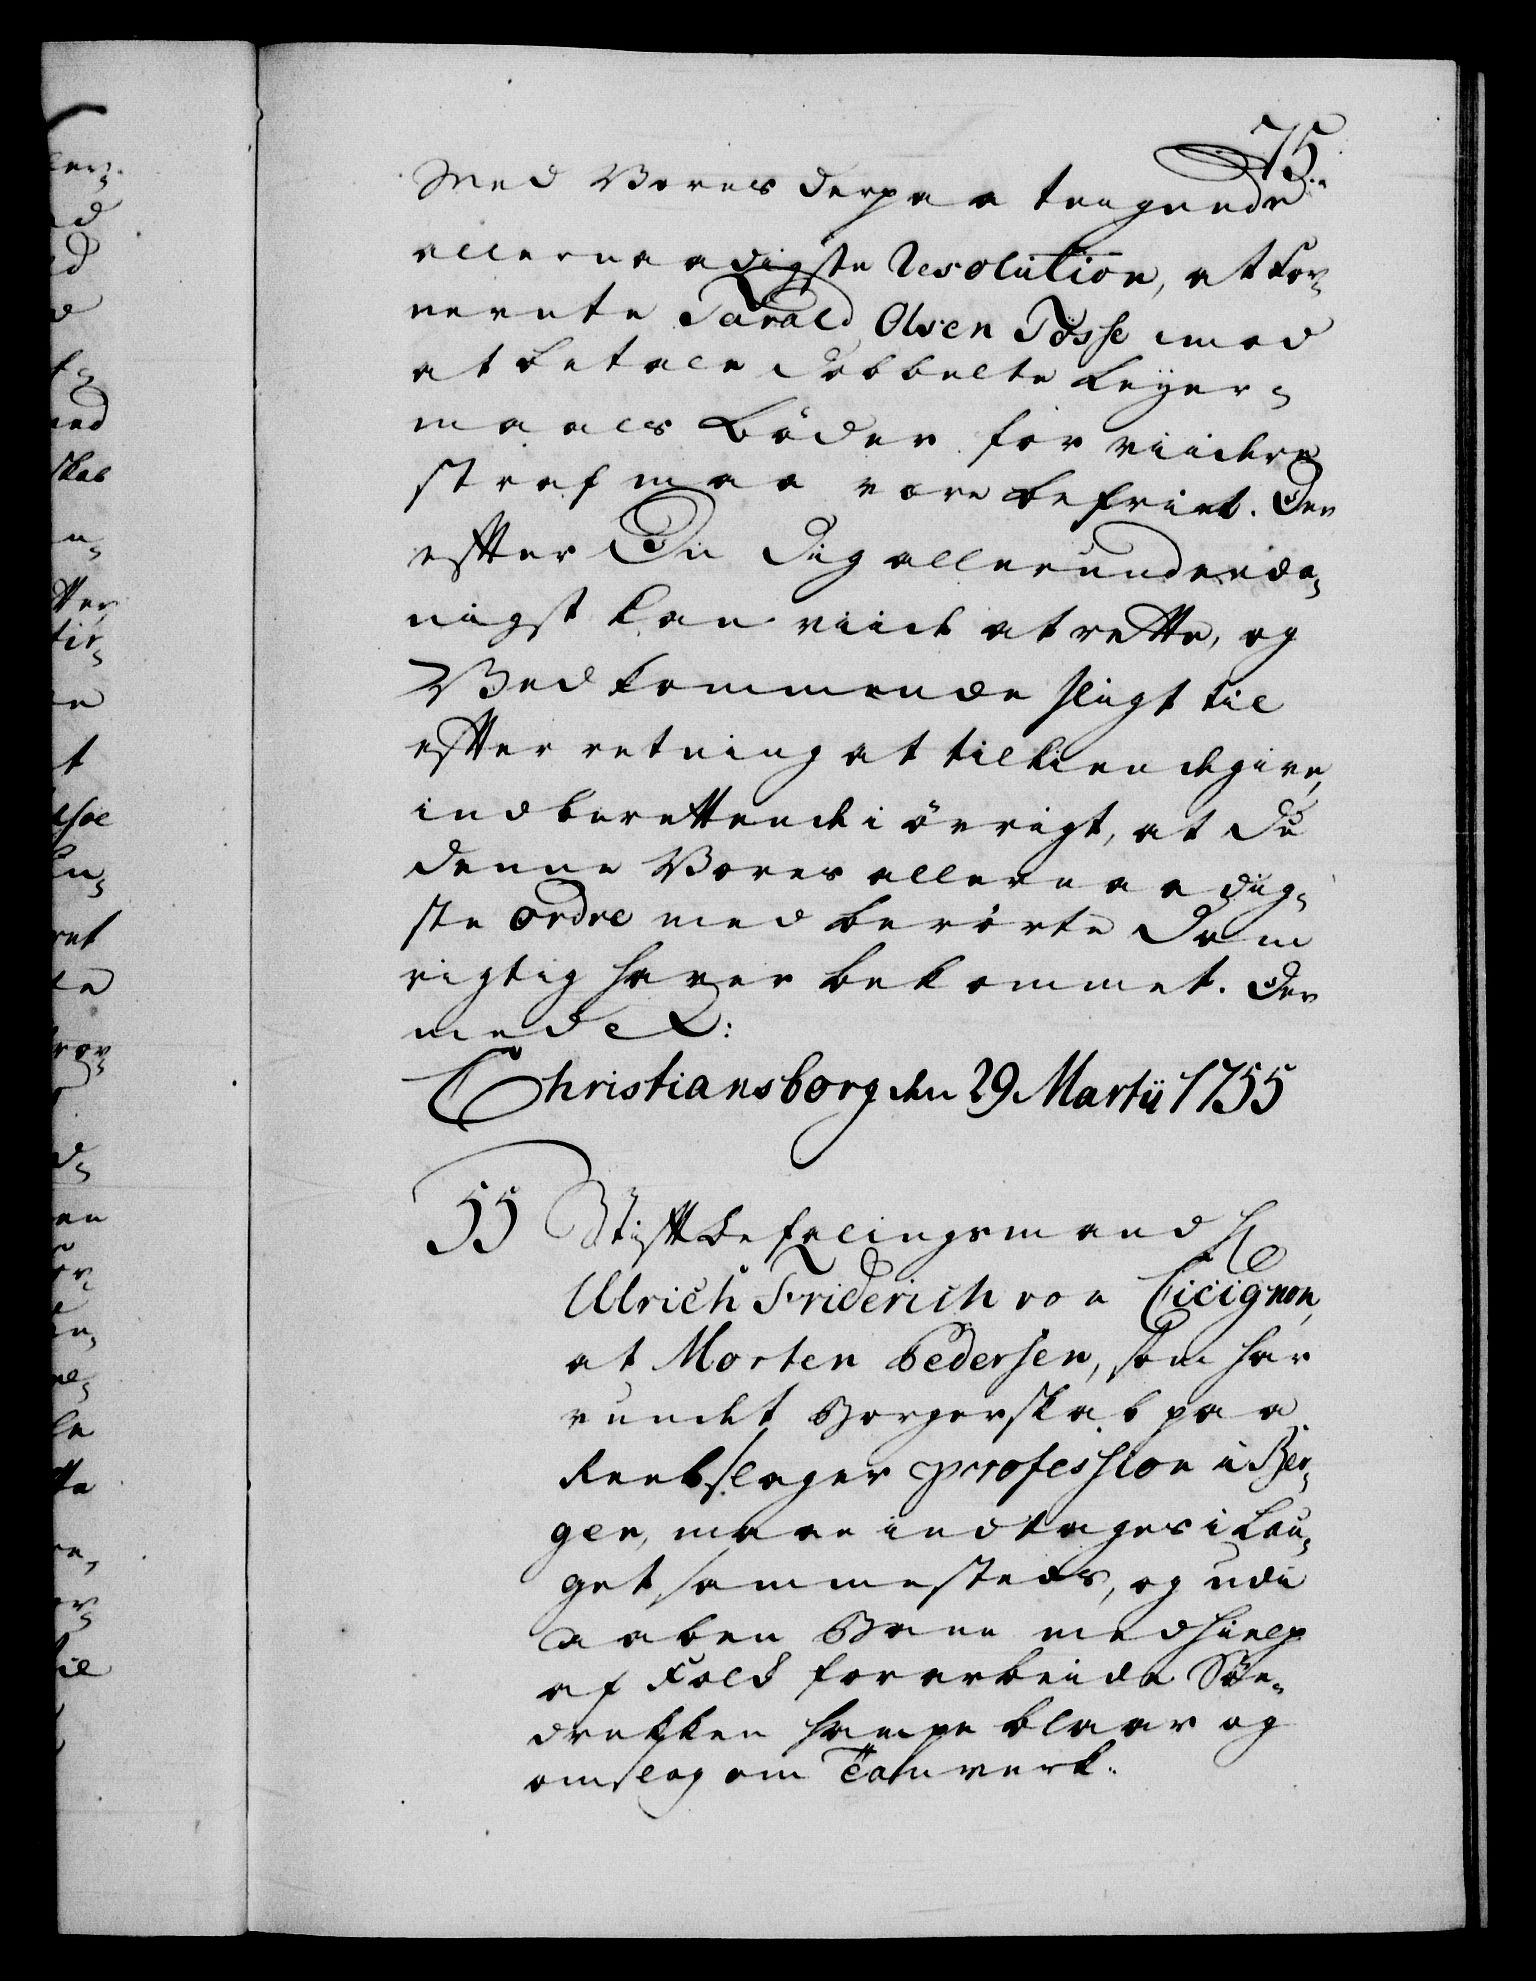 75.
Med Vores derpaa tagende
allernaadigste Resolution, at For¬
nevnte Tarald Olsen Tösse imod
at betale dobbelte Leyer¬
maals Böder for viidere
straf maa være befriet. Der
efter Du dig allerunderda¬
nigst kan viide at rette, og
Vedkommende sligt til
efterretning at tilkiendegive,
indberettende i övrigt, at du
denne Vores allernaadig¬
ste ordre med berörte Dom
rigtig haver bekommet. Der
med &:
Christiansborg den 29 Martii 1755
55 Stiftbefalingsmand Hr
Ulrich Friderich von Cicignon,
at Morten Pedersen, som har
vundet Borgerskab paa
Reebslager profession i Ber¬
gen, maae indtages i Lau¬
get sammesteds, og udi
aaben Bane med hielp
af Folck forarbeide Söe¬
drekken hampe blaar og
omslag om Tauverk.